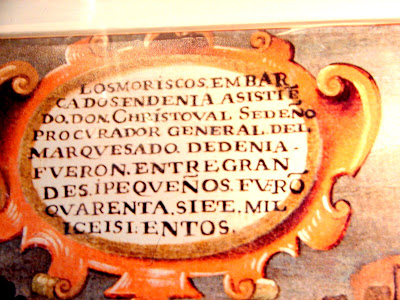 LOS MORISCOS, EMBAR,
CADOS EN DENIA ASISTIĒ
DO, DON, CHRİSTOVAL SEDEÑO
PROCVRADOR GENERAL, DEL
MARQVESADO, DE DENIA,
FVERON, ENTRE GRAN
DES, I PEQVEÑOS, FVERÕ
QVARENTA, SIETE, MIL
I CEISI ENTOS,